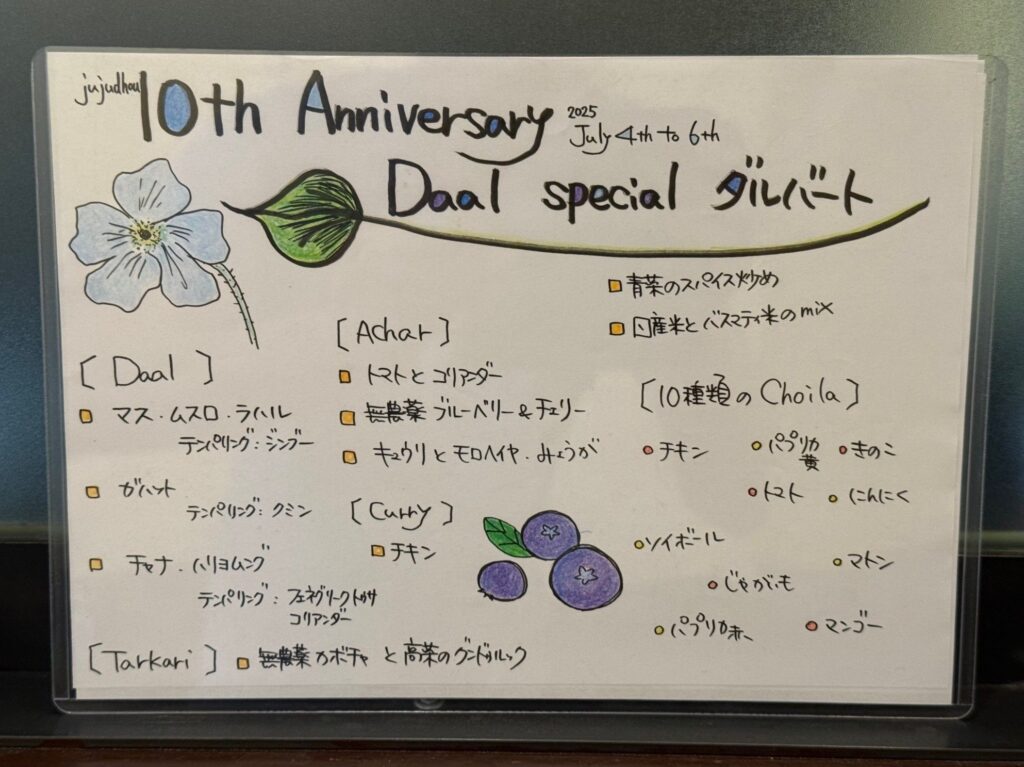 jujudhau
10th Anniversary
2025
July 4th to 6th
Daal special ダルバート
青菜のスパイス炒め
国産米とバスマティ米のmix
[Daal]
マス・ムスロ・ラハル
テンパリング：ジンブー
ガハット
テンパリング：クミン
チャナ・ハリヨムング
テンパリング：フェネグリークトゥサ
コリアンダー
[Achar]
トマトとコリアンダー
無農薬ブルーベリー&チェリー
キュウリとモロヘイヤ・みょうが
[Curry]
チキン
[10種類のChoila]
チキン
パプリカ
黄
きのこ
トマト
にんにく
ソイボール
マトン
じゃがいも
パプリカ赤
マンゴー
[Tarkari]
無農薬カボチャと高菜のグンドゥルック